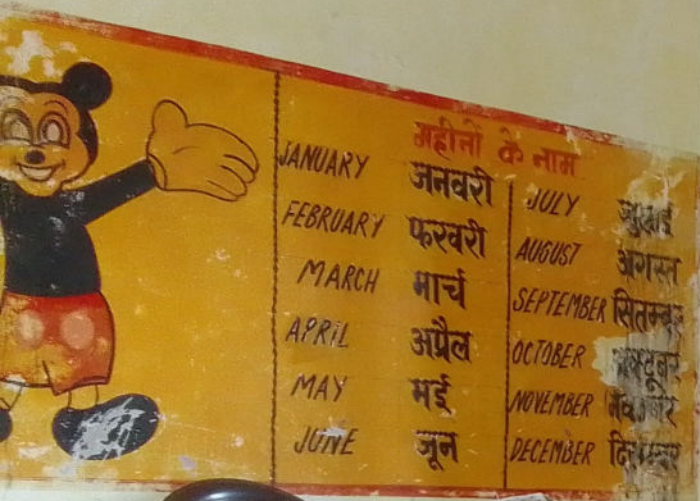 महीनों के नाम
JANUARY जनवरी
FEBRUARY फरवरी
MARCH मार्च
APRIL अप्रैल
MAY मई
JUNE जून
JULY जुलाई
AUGUST अगस्त
SEPTEMBER सितम्बर
OCTOBER अक्टूबर
NOVEMBER
DECEMBER दिसम्बर